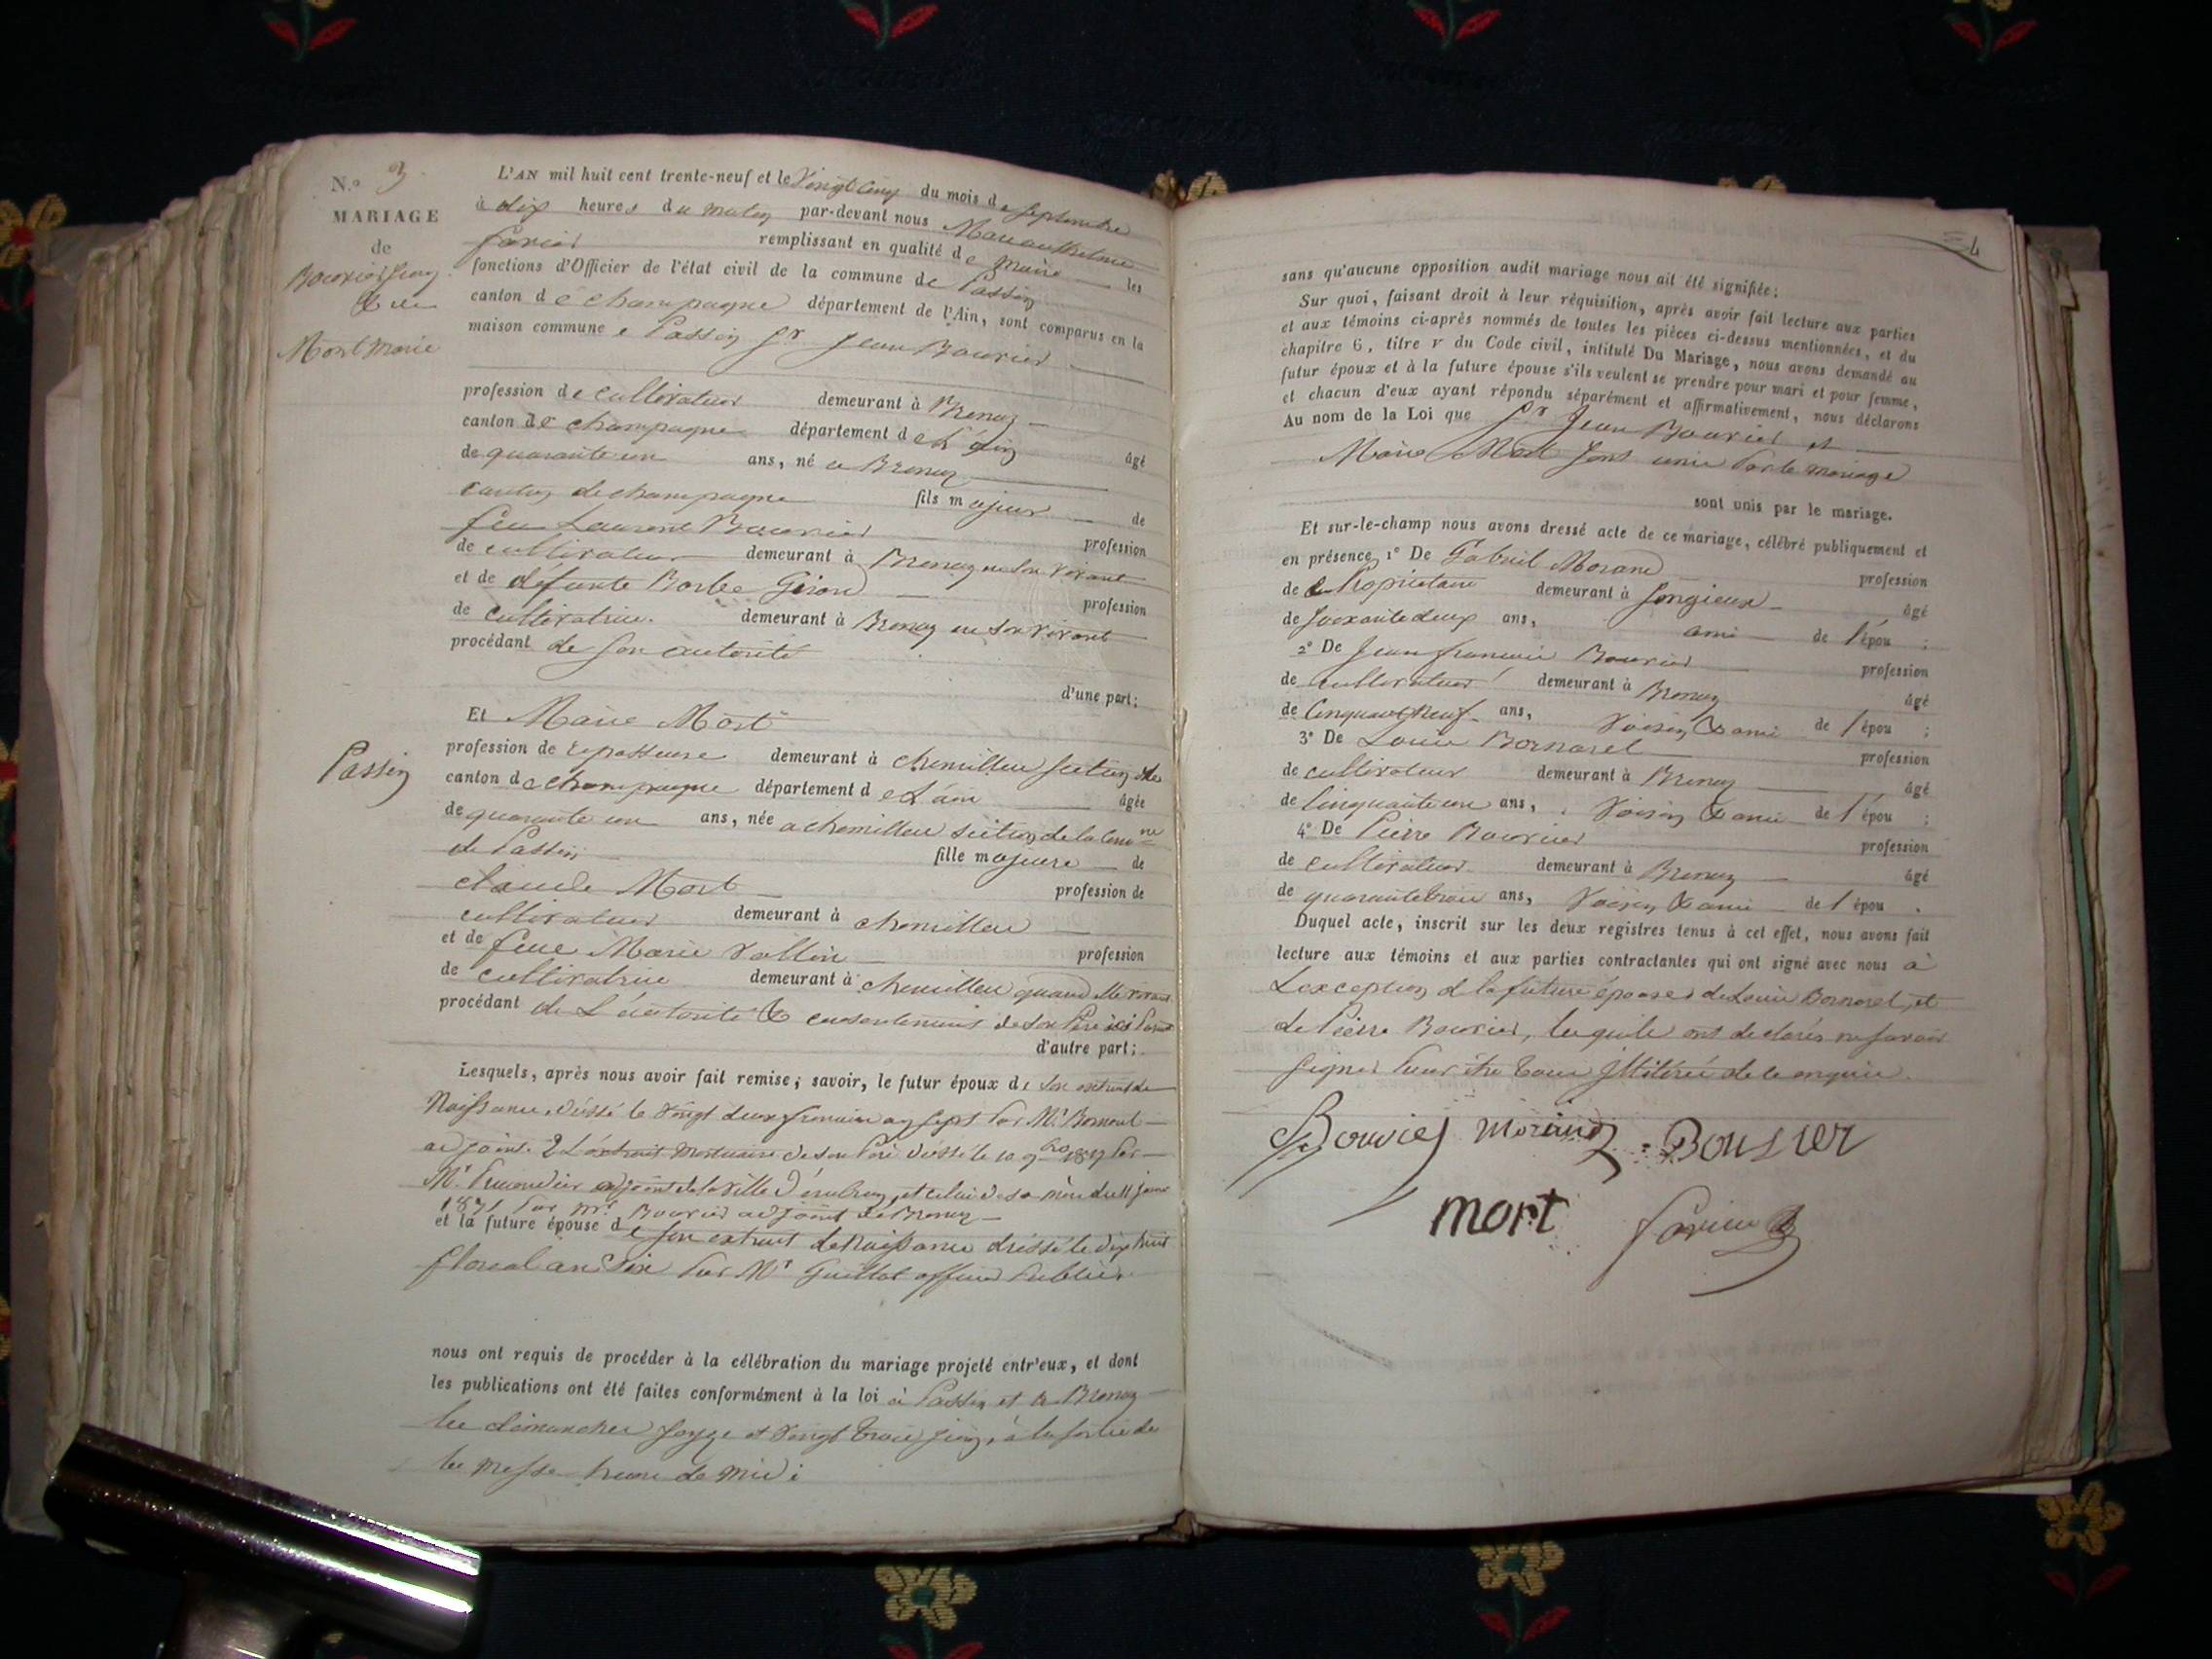 N.° 3.
MARIAGE
de
Bouvier Jean
& de
Mort Marie
Passin
L'AN mil huit cent trente-neuf et le Vingt cinq du mois de Septembre
à dix heures du matin par-devant nous
remplissant en qualité de Maire les
fonctions d'Officier de l'état civil de la commune de Passin
canton de champagne département de l'Ain, sont comparus en la
maison commune de Passin Sr. Jean Bouvier
profession de cultivateur demeurant à Brenaz
canton de champagne département de L'ain âgé
de quarante un ans, né a Brenaz
canton de champagne fils majeur de
feu Laurent Bouvier profession
de cultivateur demeurant à Brenaz en son vivant
et de défunte Barbe profession
de cultivatrice. demeurant à Brenaz en son vivant
procédant de son autorité
d'une part;
Et Marie Mort
profession de repasseuse demeurant à chemillieu section de
canton de champagne département de L'ain âgée
de quarante un ans, née a chemillieu section de la Comne
de Passin fille majeure de
claude Mort profession de
cultivateur demeurant à chemillieu
et de feue Marie Vallin profession
de cultivatrice demeurant à chemillieu quand elle vivait
procédant de L'autorité & consentement de son Père ici
d'autre part;
Lesquels, après nous avoir fait remise; savoir, le futur époux de son extrait de
Naissance, dréssé le Vingt deux frimaire an sept par Mr.
adjoint. 2 L'extrait mortuaire de son Père dréssé le 10 par
Mr. adjoint de la ville et celui de sa mère du 11
1831 par Mr. Bouvier adjoint de Brenaz
et la future épouse de son extrait de naissance dréssé le dix huit
floreal an Six par Mr Guillot officier Public.
nous ont requis de procéder à la célébration du mariage projeté entr'eux, et dont
les publications ont été faites conformément à la loi à Passin et à Brenaz
les dimanches seize et Vingt trois juin, à la sortie de
la messe heure de midi
4
sans qu'aucune opposition audit mariage nous ait été signifiée;
Sur quoi, faisant droit à leur réquisition, après avoir fait lecture aux parties
et aux témoins ci-après nommés de toutes les pièces ci-dessus mentionnées, et du
chapitre 6, titre v du Code civil, intitulé Du Mariage, nous avons demandé au
futur époux et à la future épouse s'ils veulent se prendre pour mari et pour femme,
et chacun d'eux ayant répondu séparément et affirmativement, nous déclarons
Au nom de la Loi que Sr Jean Bouvier et
Marie Mort sont unis par le mariage
sont unis par le mariage.
Et sur-le-champ nous avons dressé acte de ce mariage, célébré publiquement et
en présence, 1° De Gabriel Morand profession
de Propriétaire demeurant à Songieux âgé
de soixante deux ans, ami de l'épou ;
2° De Jean françois Bouvier profession
de cultivateur demeurant à Brenaz âgé
de Cinquante neuf ans, Voisin & ami de l'épou ;
3° De Louis Bornarel profession
de cultivateur demeurant à Brenaz âgé
de Cinquante un ans, Voisin & ami de l'épou ;
4° De Pierre Bouvier profession
de cultivateur demeurant à Brenaz âgé
de quarante trois ans, Voisin & ami de l'épou .
Duquel acte, inscrit sur les deux registres tenus à cet effet, nous avons fait
lecture aux témoins et aux parties contractantes qui ont signé avec nous à
L'exception de la future épouse de Louis Bornarel, et
de Pierre Bouvier, lesquels ont declarés ne savoir
signer pour être tous Illitérés de ce enquis.
Bouvier morand Bouvier
mort